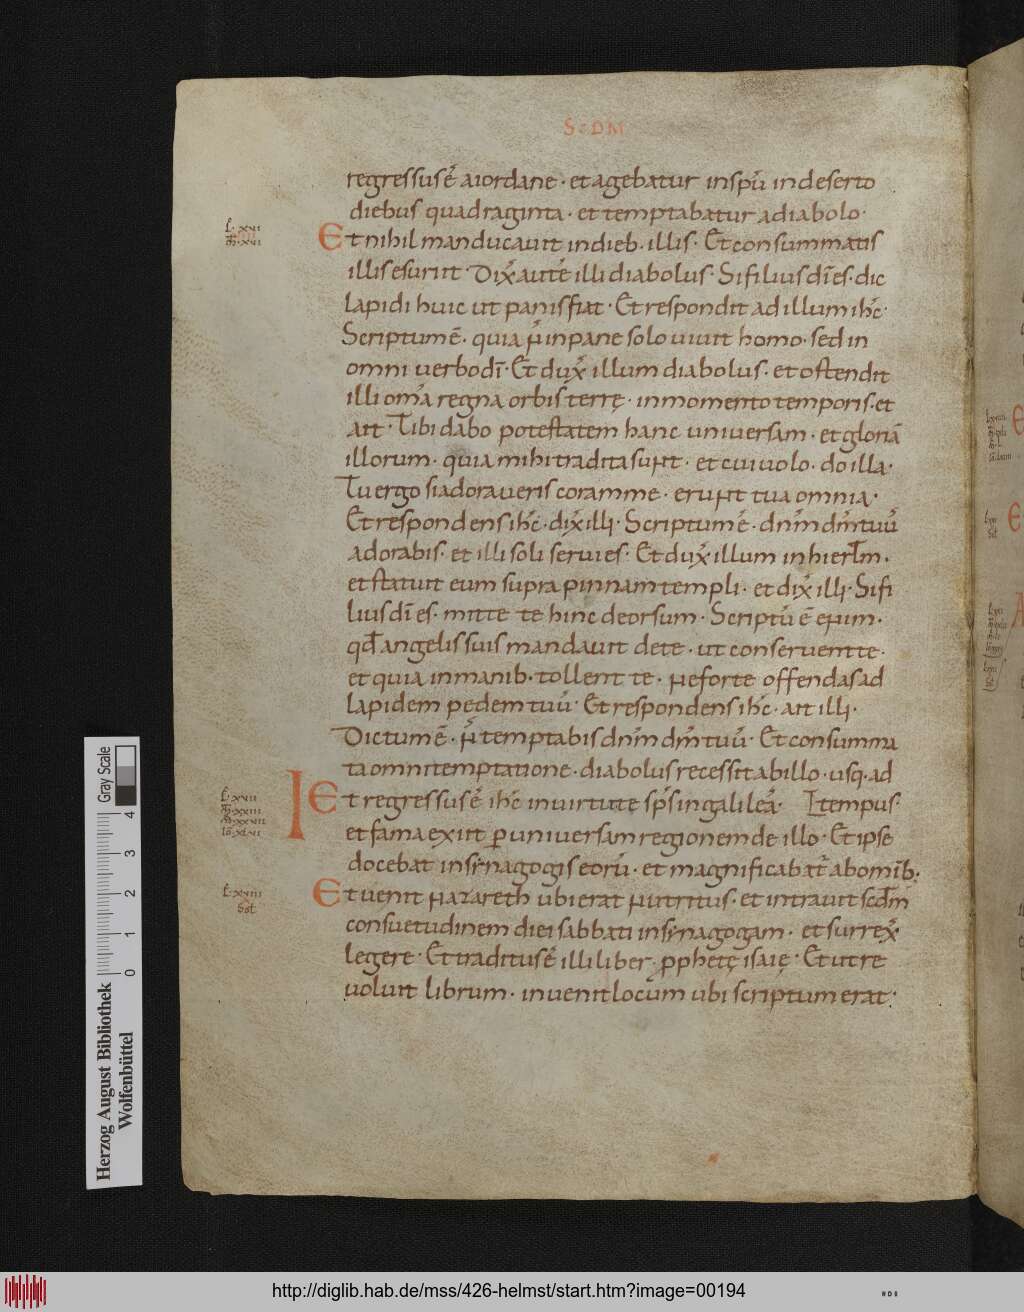 ScDM
regressus ḗ a iordane · et agebatur in spū in deserto
diebus quadraginta · et temptabatur a diabolo ·
L · xvi
Et nihil manducauit in dieb · illis · Et consummatis
illis esuriit · Dix̄ autē illi diabolus · Si filius dī es · dic
lapidi huic ut panis fiat · Et respondit ad illum ihc̄ ·
Scriptum ē · quia n̄ in pane solo uiuit homo · sed in
omni uerbo dī · Et dux̄ illum diabolus · et ostendit
illi om̄a regna orbis terrę · in momento temporis · et
ait · Tibi dabo potestatem hanc uniuersam · et gloriā
illorum · quia mihi tradita sunt · et cui uolo · do illa ·
Tu ergo si adoraueris coram me · erunt tua omnia ·
Et respondens ihc̄ · dix̄ illi · Scriptum ē · dnm̄ dm̄ tuū
adorabis · et illi soli seruies · Et dux̄ illum in hierłm ·
et statuit eum supra pinnam templi · et dix̄ illi · Si fi
lius dī es · mitte te hinc deorsum · Scriptū ē enim ·
qđ angelis suis mandauit de te · ut conseruent te ·
et quia in manib · tollent te · ne forte offendas ad
lapidem pedem tuū · Et respondens ihc̄ · ait illi ·
Dictum ē · n̄ temptabis dnm̄ dm̄ tuū · Et consumma
ta omni temptatione · diabolus recessit ab illo · usq · ad
Et regressus ē ihc̄ in uirtute sp̄s in galileā · I tempus ·
et fama exiit ꝑ uniuersam regionem de illo · Et ipse
docebat in synagogis eorū · et magnificabat̄ ab omīb ·
L · xviii
Et uenit nazareth ubi erat nutritus · et intrauit scđm
consuetudinem die sabbati in synagogam · et surrex̄
legere · Et traditus ē illi liber ꝓphetę isaię · Et ut re
uoluit librum · inuenit locum ubi scriptum erat ·
Gray Scale
0 1 2 3 4
Herzog August Bibliothek
Wolfenbüttel
http://diglib.hab.de/mss/426-helmst/start.htm?image=00194